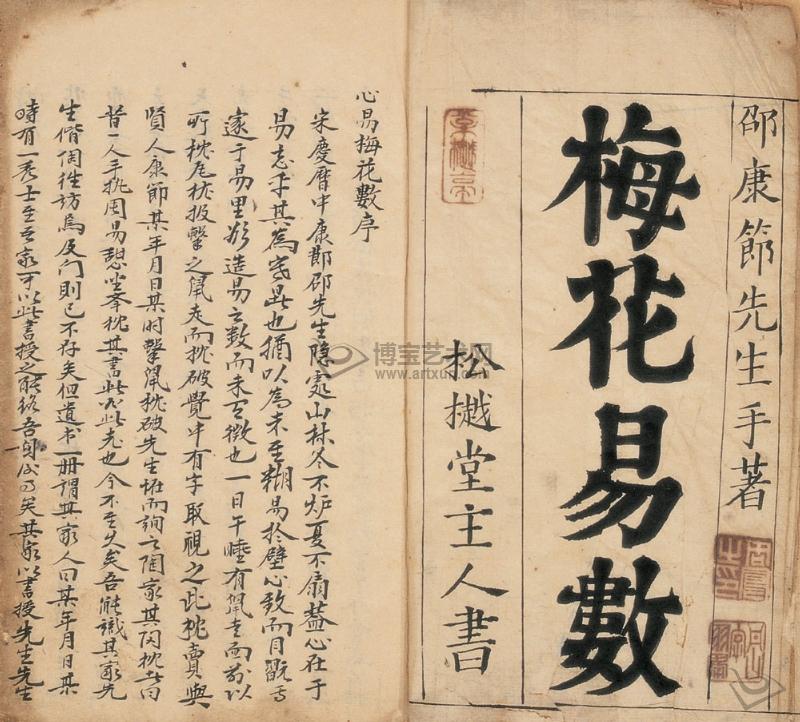 邵康節先生手著
梅花易數
松樾堂主人書
心易梅花數序
宋慶曆中康節邵先生隐處山林冬不炉夏不扇蓋心在于
易忘乎其為寒暑也猶以為未至糊易於壁心致而目翫焉
邃于易里欲造易之数而未有徴也一日午睡有鼠走而前以
所枕瓦枕投擊之鼠走而枕破覺中有字取視之此枕賣與
賢人康節某年月日某时擊鼠枕破先生怪而詢之陶家其陶枕者曰
昔一人手执周易憩坐奉枕其書此必此老也今不至久矣吾能識其家先
生偕陶往訪焉及门則已不存矣但遺书一册謂其家人曰某年月日某
時有一秀士至吾家可以此書授之能終吾身後事矣其家以書授先生先生
博宝艺术网
www.artxun.com